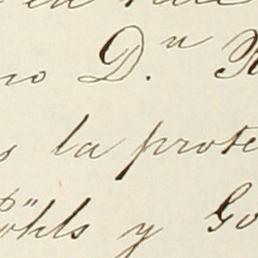 no D.n R
s la prote
Pöhls y Go